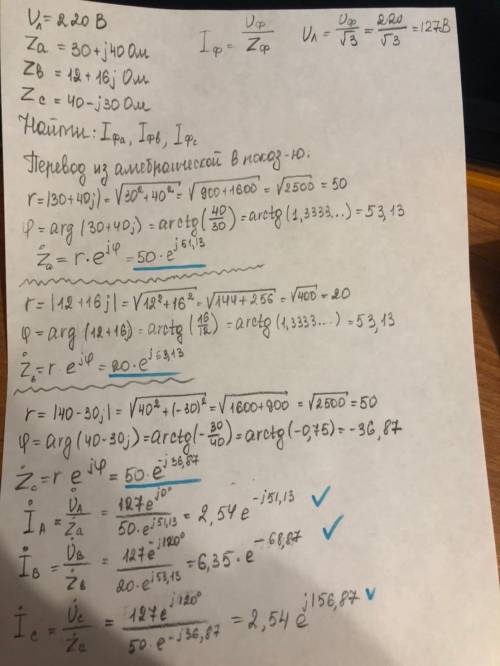 Uл = 220 В
Za = 30 + j40 Ом
Zв = 12 + 16j Ом
Zc = 40 - j30 Ом
Iф = Uф / Zф
Uл = Uф/√3 = 220/√3 = 127В
Найти: Iфа, Iфв, Iфс
Перевод из алгебраической в показ-ю:
r = |30+40j| = √30²+40² = √900+1600 = √2500 = 50
φ = arg (30+40j) = arctg(40/30) = arctg(1,3333...) = 53,13
Ża = r·e^jφ = 50·e^j51,13
r = |12+16j| = √12²+16² = √144+256 = √400 = 20
φ = arg (12+16j) = arctg(16/12) = arctg(1,3333...) = 53,13
Żв = r e^jφ = 20·e^j53,13
r = |40-30j| = √40²+(-30)² = √1600+900 = √2500 = 50
φ = arg (40-30j) = arctg(-30/40) = arctg(-0,75) = -36,87
Żc = r e^jφ = 50·e^-j36,87
İA = U̇A/Ża = 127e^j0°/50·e^j51,13 = 2,54e^-j51,13
İB = U̇B/Żв = 127e^-j120°/20·e^j53,13 = 6,35·e^-68,87
İc = U̇c/Żc = 127e^j120°/50·e^-j36,87 = 2,54e^j156,87